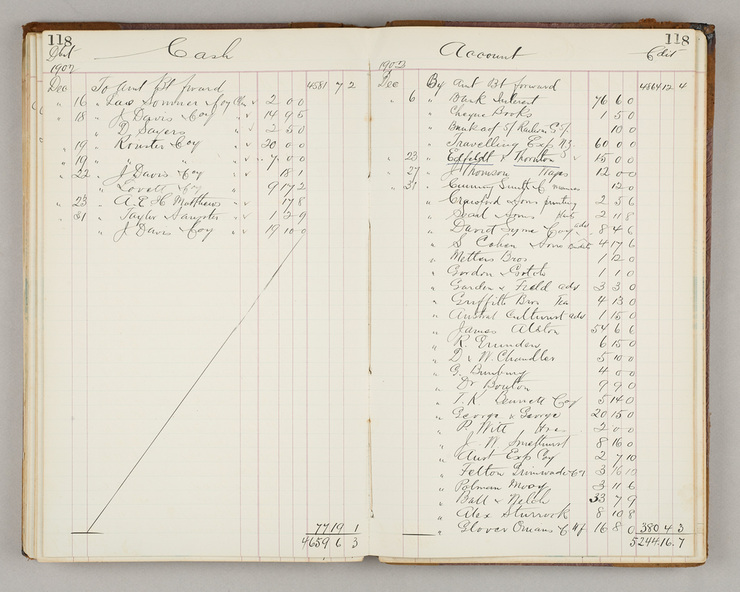 118
Cash
1902
Dec To amt Bt forward 4581 7 2
" 16 " & Coy " 2 0 0
" 18 " J Davis & Coy " 14 9 5
" D Sayers " 2 5 0
" 19 " Rouster & Coy " 20 0 0
" 19 " " " 7 0 0
" 22 " J Davis & Coy " 18 1
" Lovett & Coy " 9 17 2
" 23 " A. E. H. Matthews " 17 8
" 31 " Taylor Sangster " 1 2 9
" J Davis & Coy " 19 10 0
77 19 1
4659 6 3
118
Account
1902
Dec By amt Bt forward 4864 12 4
" 6 " Bank Interest 76 6 0
" Cheque Books 1 5 0
" Bank 10 0
" Travelling Exp N.Z. 60 0 0
" 23 " & Thornton 15 0 0
" 27 " J Thomson Traps 12 0 0
" 31 " Cuming Smith & C manures 12 0
" Crawford & Sons printing 2 5 6
" & Sons 2 11 8
" David Syme & Coy ads 8 4 6
" S Cohen & Sons 4 17 6
" Metters Bros 1 12 0
" Gordon & Gotch 1 1 0
" Garden & Field ads 3 3 0
" Griffith Bros Tea 4 13 0
" Austral Culturist ads 1 15 0
" James Alston 54 6 6
" R. 6 15 0
" D & W. Chandler 5 10 0
" G. Bunbury 4 0 0
" Dr Boulton 9 9 0
" T. K. Bennett & Coy 5 14 0
" George & George 20 15 0
" P. Witt 2 0 0
" J. W. Smethurst 8 16 0
" Aust Exp Coy 2 7 10
" Felton Grimwade & Cy 3 16 10
" 3 11 6
" Ball & Welch 33 7 9
" Alex Sturrock 8 10 8
" Glover Onians & C 16 8 0 380 4 3
5244 16 7